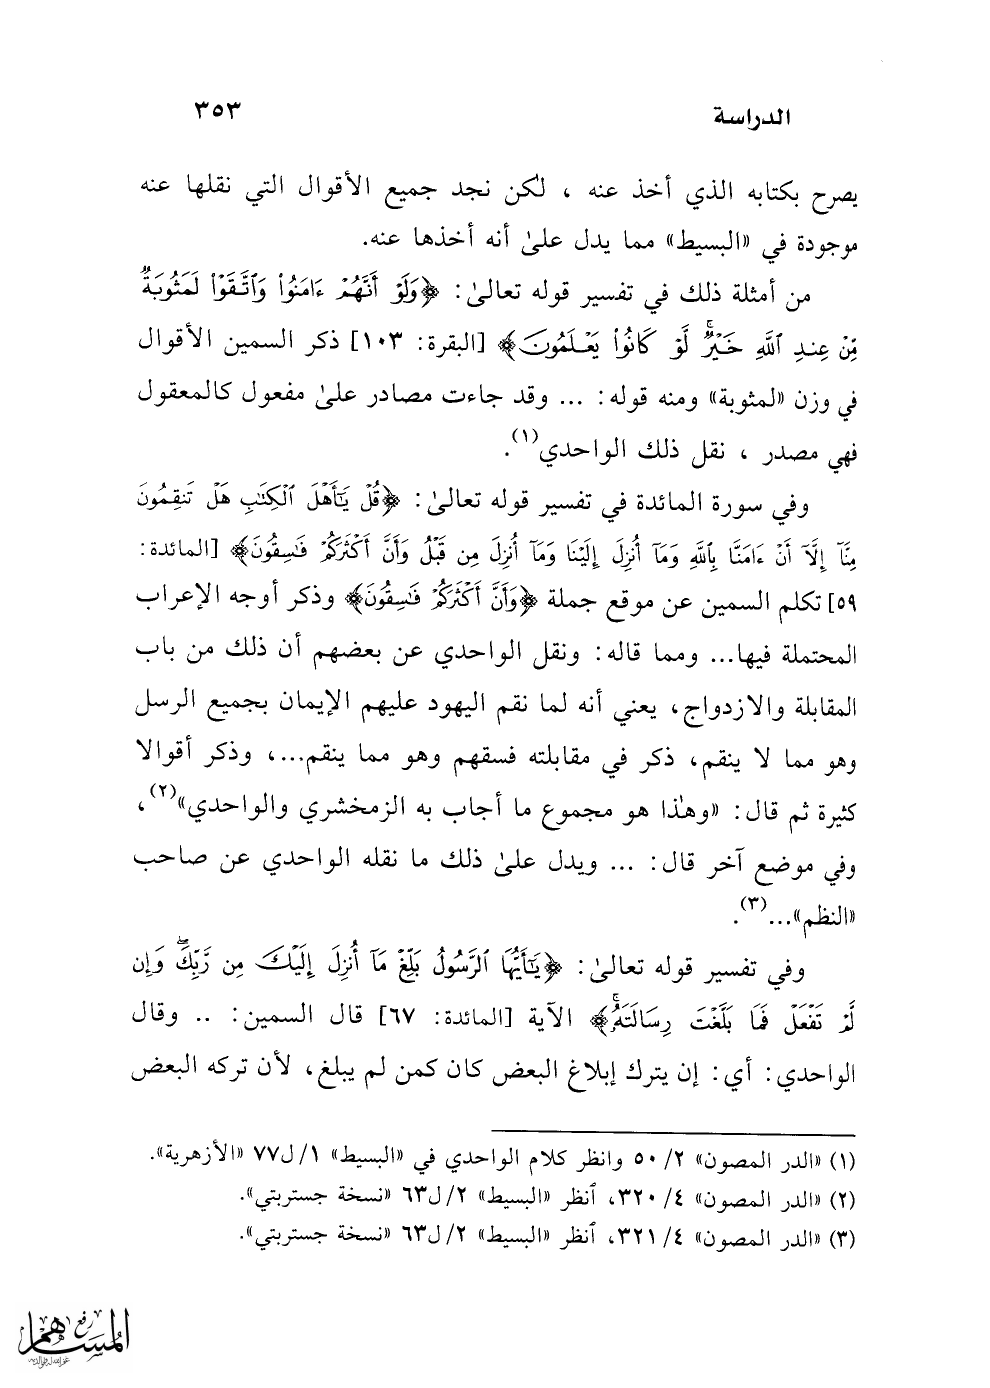 الدراسة ٣٥٣
يصرح بكتابه الذي أخذ عنه ، لكن نجد جميع الأقوال التي نقلها عنه
موجودة في «البسيط» مما يدل علىٰ أنه أخذها عنه.
من أمثلة ذلك في تفسير قوله تعالىٰ: ﴿وَلَوْ أَنَّهُمْ ءَامَنُوا۟ وَٱتَّقَوْا۟ لَمَثُوبَةٌ
مِّنْ عِندِ ٱللَّهِ خَيْرٌۚ لَّوْ كَانُوا۟ يَعْلَمُونَ﴾ [البقرة: ١٠٣] ذكر السمين الأقوال
في وزن «لمثوبة» ومنه قوله: ... وقد جاءت مصادر علىٰ مفعول كالمعقول
فهي مصدر ، نقل ذلك الواحدي(١).
وفي سورة المائدة في تفسير قوله تعالىٰ: ﴿قُلْ يَٰٓأَهْلَ ٱلْكِتَٰبِ هَلْ تَنقِمُونَ
مِنَّآ إِلَّآ أَنْ ءَامَنَّا بِٱللَّهِ وَمَآ أُنزِلَ إِلَيْنَا وَمَآ أُنزِلَ مِن قَبْلُ وَأَنَّ أَكْثَرَكُمْ فَٰسِقُونَ﴾ [المائدة:
٥٩] تكلم السمين عن موقع جملة ﴿وَأَنَّ أَكْثَرَكُمْ فَٰسِقُونَ﴾ وذكر أوجه الإعراب
المحتملة فيها... ومما قاله: ونقل الواحدي عن بعضهم أن ذلك من باب
المقابلة والازدواج، يعني أنه لما نقم اليهود عليهم الإيمان بجميع الرسل
وهو مما لا ينقم، ذكر في مقابلته فسقهم وهو مما ينقم...، وذكر أقوالا
كثيرة ثم قال: «وهٰذا هو مجموع ما أجاب به الزمخشري والواحدي»(٢)،
وفي موضع آخر قال: ... ويدل علىٰ ذلك ما نقله الواحدي عن صاحب
«النظم»...(٣).
وفي تفسير قوله تعالىٰ: ﴿يَٰٓأَيُّهَا ٱلرَّسُولُ بَلِّغْ مَآ أُنزِلَ إِلَيْكَ مِن رَّبِّكَۖ وَإِن
لَّمْ تَفْعَلْ فَمَا بَلَّغْتَ رِسَالَتَهُۥۚ﴾ الآية [المائدة: ٦٧] قال السمين: .. وقال
الواحدي: أي: إن يترك إبلاغ البعض كان كمن لم يبلغ، لأن تركه البعض
(١) «الدر المصون» ٢/ ٥٠ وانظر كلام الواحدي في «البسيط» ١/ ل٧٧ «الأزهرية».
(٢) «الدر المصون» ٤/ ٣٢٠، ٱنظر «البسيط» ٢/ ل٦٣ «نسخة جستربتي».
(٣) «الدر المصون» ٤/ ٣٢١، ٱنظر «البسيط» ٢/ ل٦٣ «نسخة جستربتي».
رفع
المساهم